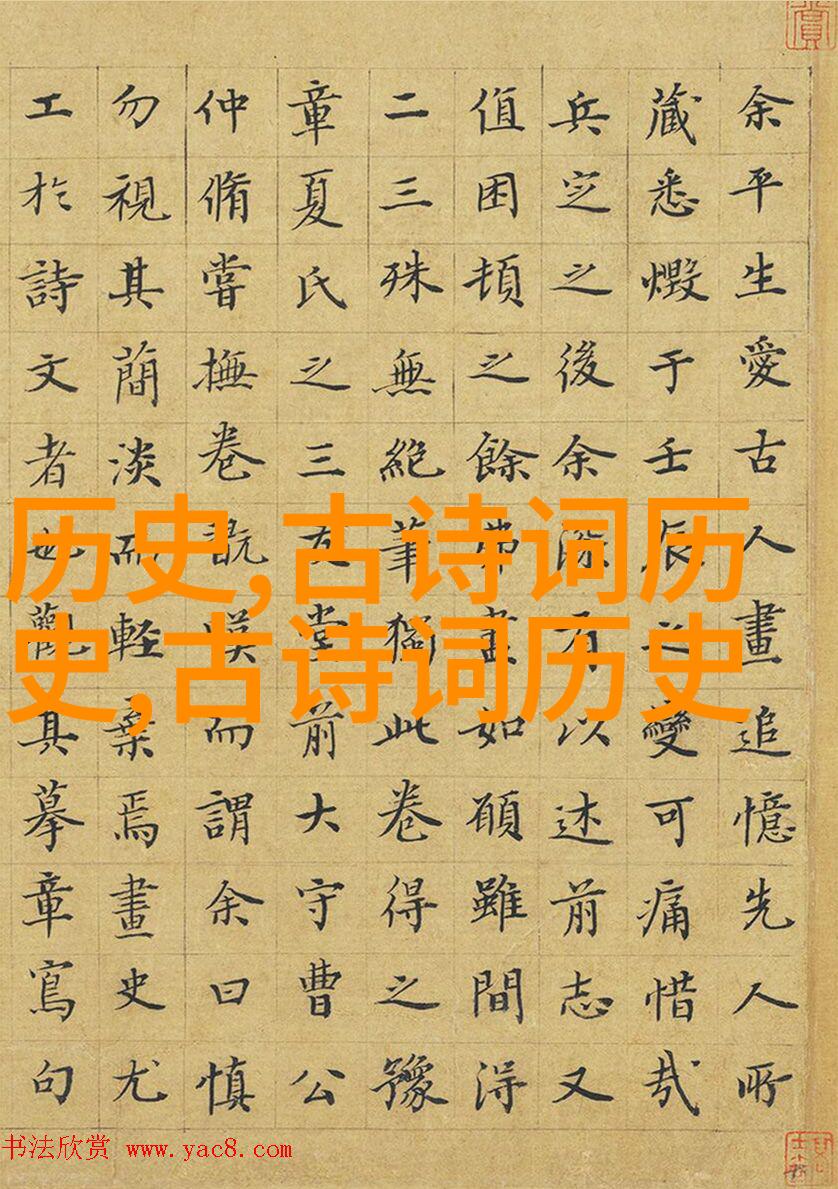 余平生愛古人畫追憶先人所
藏悉燬于壬辰之變可痛惜哉
兵定之後余有以述前志又
值困頓之餘弗盡如願雖間得
二三殊無絶筆獨此卷得之豫
章夏氏之三友堂前大守曹公
仲脩嘗撫卷嘆而謂余曰慎
勿視其簡淡而輕棄焉畫史尤
工於詩文者也觀其摹章寫句
历史,古诗词历
史,古诗词历史
书法欣赏 www.yac8.com